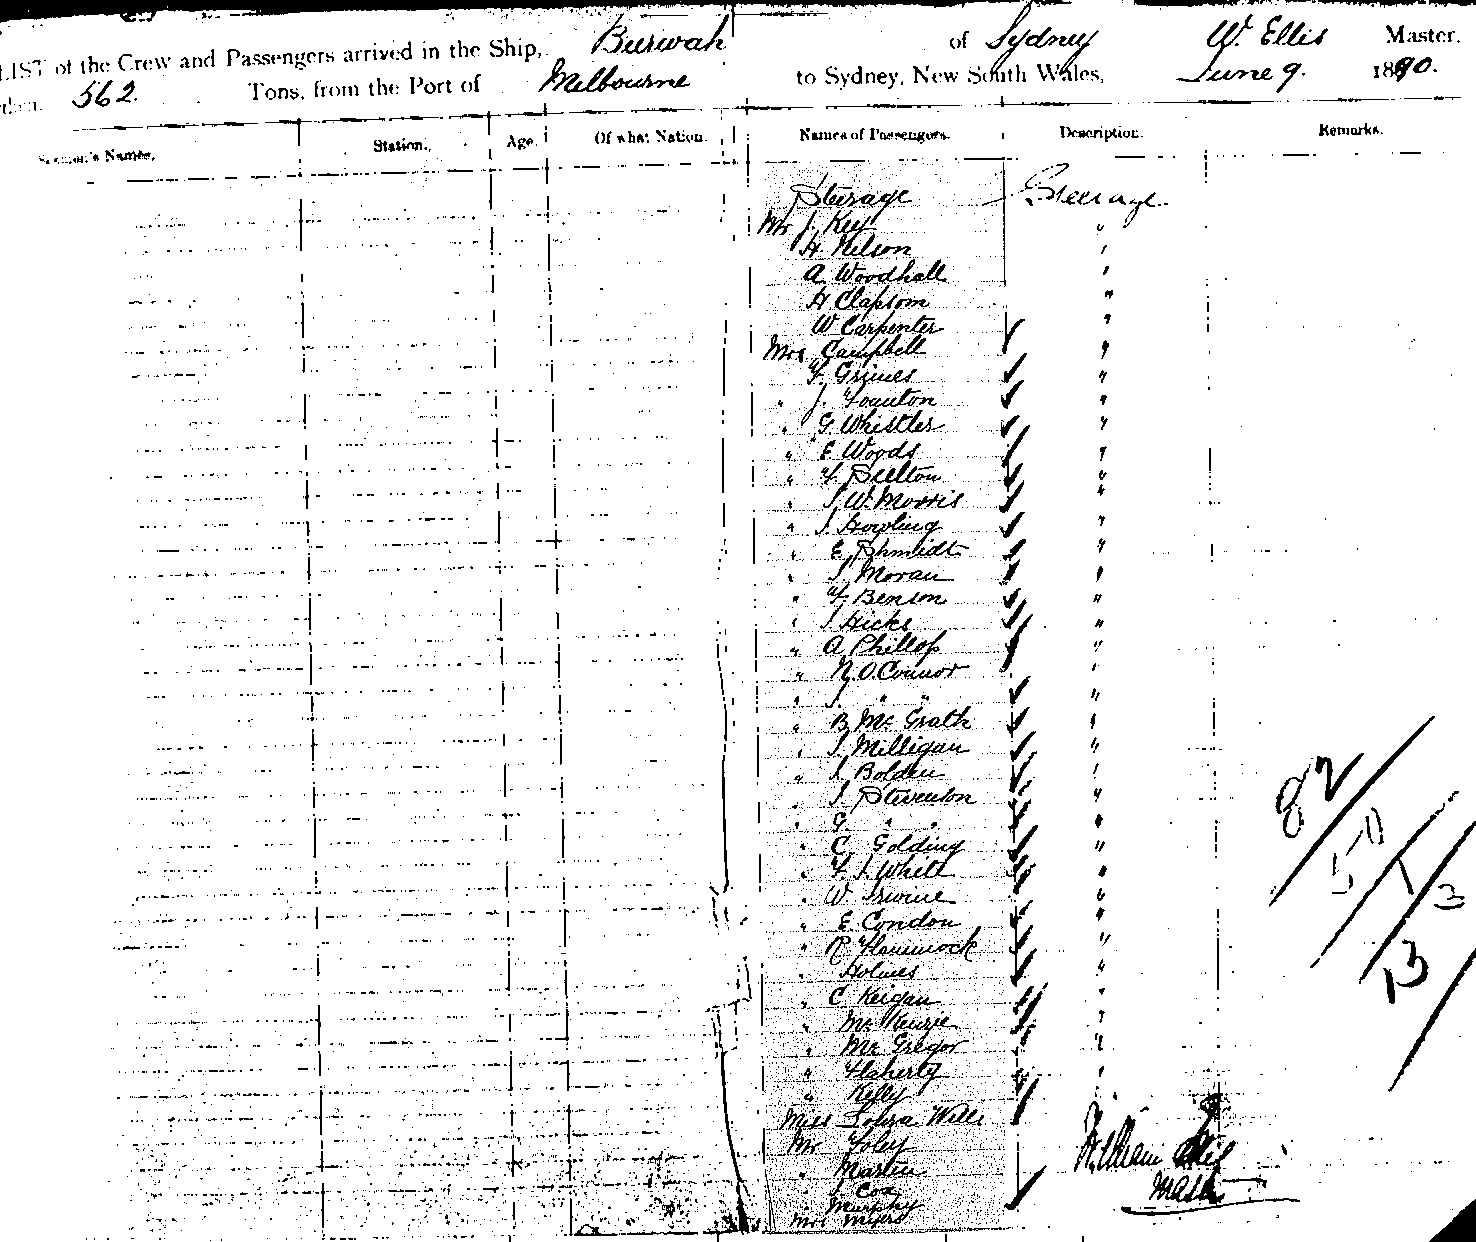 LIST of the Crew and Passengers arrived in the Ship, Burwah of Sydney W. Ellis Master.
562 Tons, from the Port of Melbourne to Sydney, New South Wales, June 9. 1890.
Seamen's Names. Station. Age. Of what Nation. Names of Passengers. Description. Remarks.
Steerage Steerage
Mr J. Key "
H. Nelson "
A. Woodhall "
H Clapsom "
W Carpenter "
Mrs Campbell "
F. Grimes "
" J. Founton "
" G. Whistler "
" E Woods "
" F. Skelton "
" J. W. Morris "
" J. Howling "
" E. Shmidt "
" J. Moran "
" F. Benson "
" J Hicks "
" A. Phillop "
" N. O'Connor "
" J. " " "
" B. Mc Grath "
" J. Milligan "
" J. Bolden "
" J. Stevenson "
" G. " " "
" C. Golding "
" F. J. White "
" W. Irwine "
" E. Condon "
" R. Hammock "
" Holmes "
" C Keigan "
" Mc Kenzie "
" Mc Gregor "
" Flaherty "
" Kelly "
Miss Wills
Mr Foley
" Martin
" J. Cox
Murphy
Mrs Myers
82/
50/
1/
3
13/
William Ellis
Master